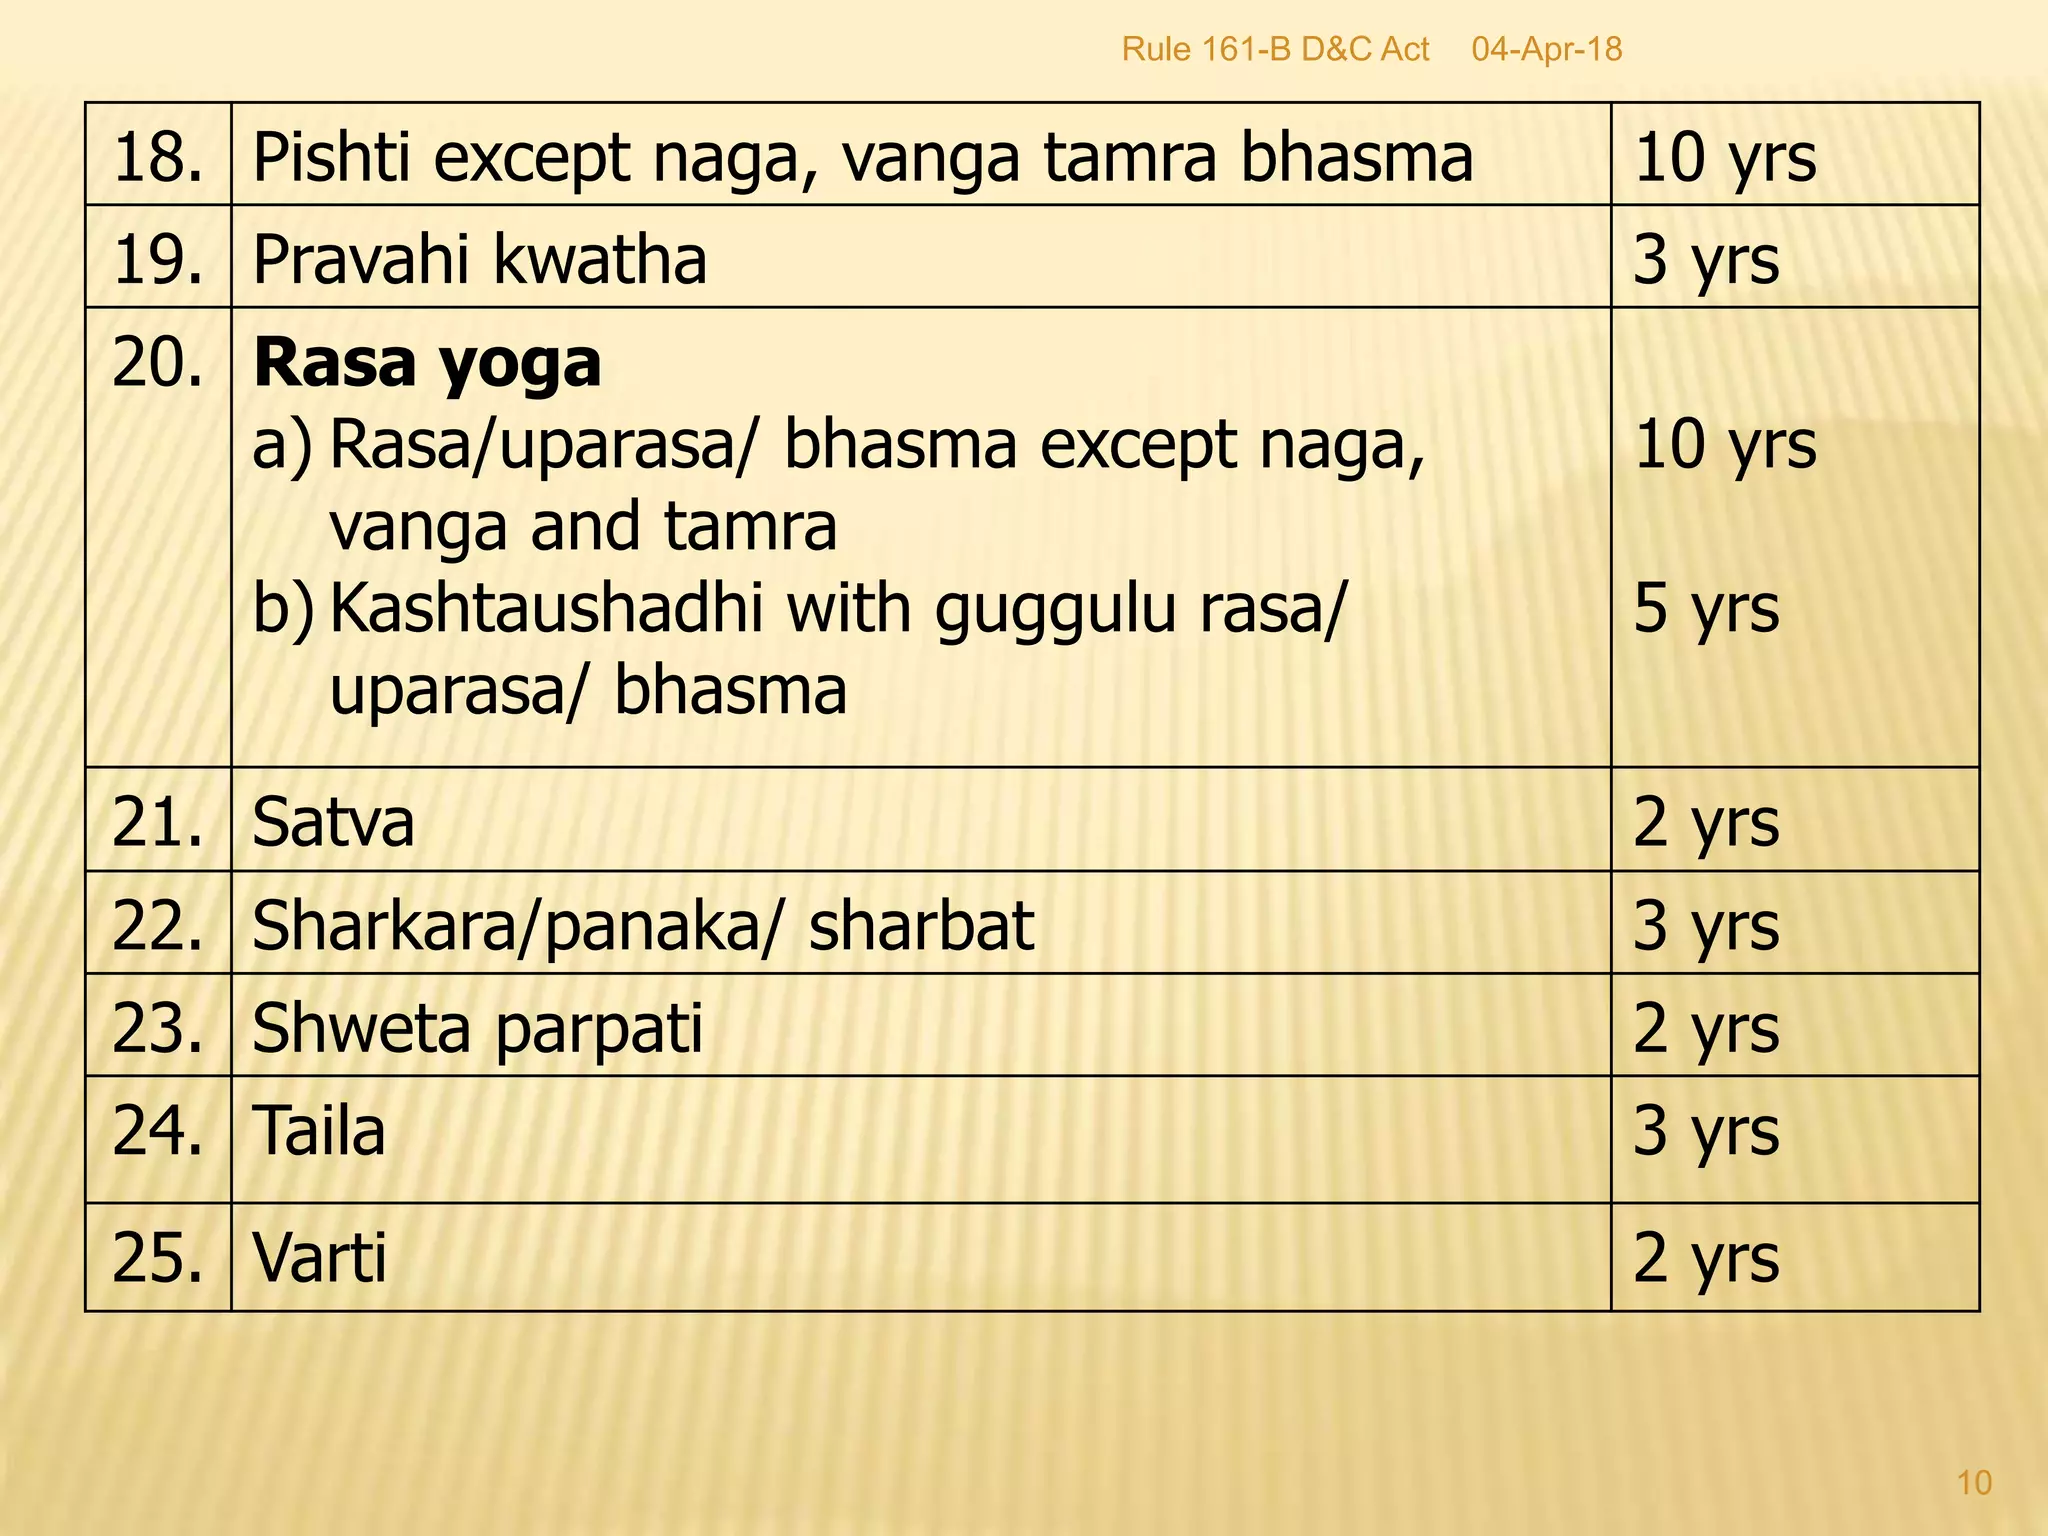 Rule 161-B D&C Act 04-Apr-18
18. Pishti except naga, vanga tamra bhasma 10 yrs
19. Pravahi kwatha 3 yrs
20. Rasa yoga
a) Rasa/uparasa/ bhasma except naga, 10 yrs
vanga and tamra
b) Kashtaushadhi with guggulu rasa/ 5 yrs
uparasa/ bhasma
21. Satva 2 yrs
22. Sharkara/panaka/ sharbat 3 yrs
23. Shweta parpati 2 yrs
24. Taila 3 yrs
25. Varti 2 yrs
10